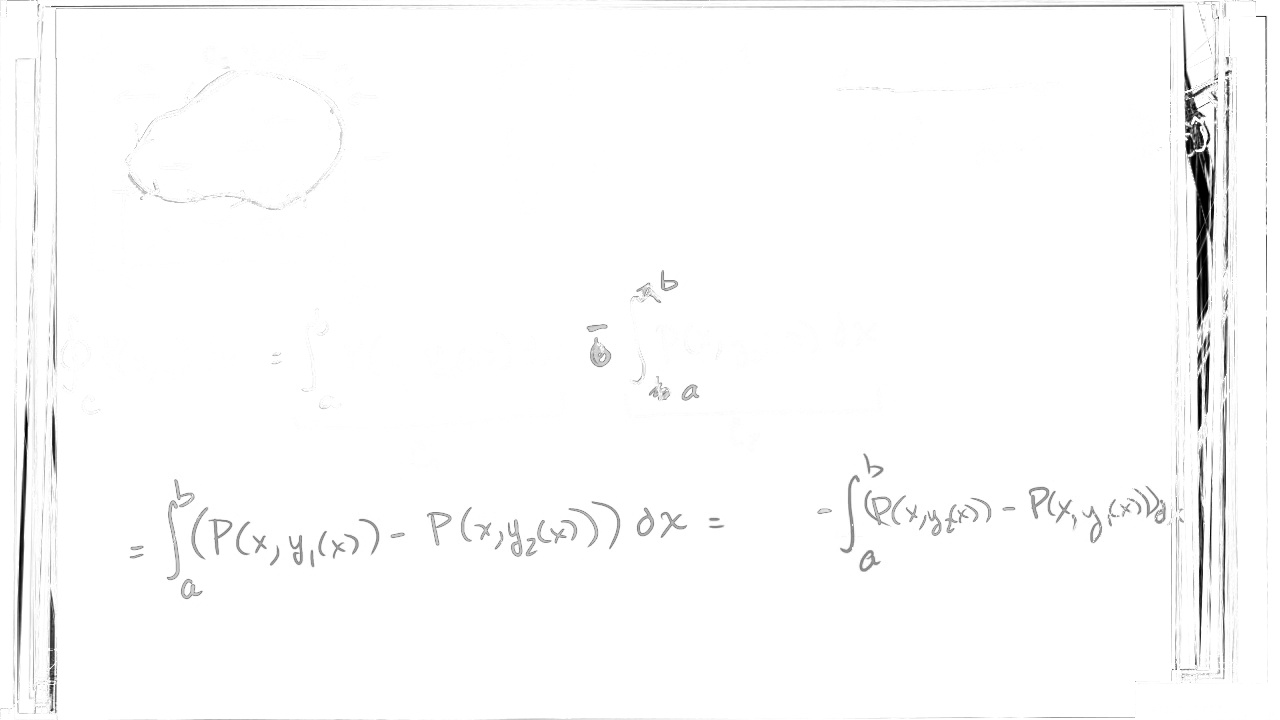 = ∫ - ∫ b a
= ∫_a^b (P(x, y₁(x)) - P(x, y₂(x))) dx = - ∫_a^b (P(x, y₂(x)) - P(x, y₁(x))) d